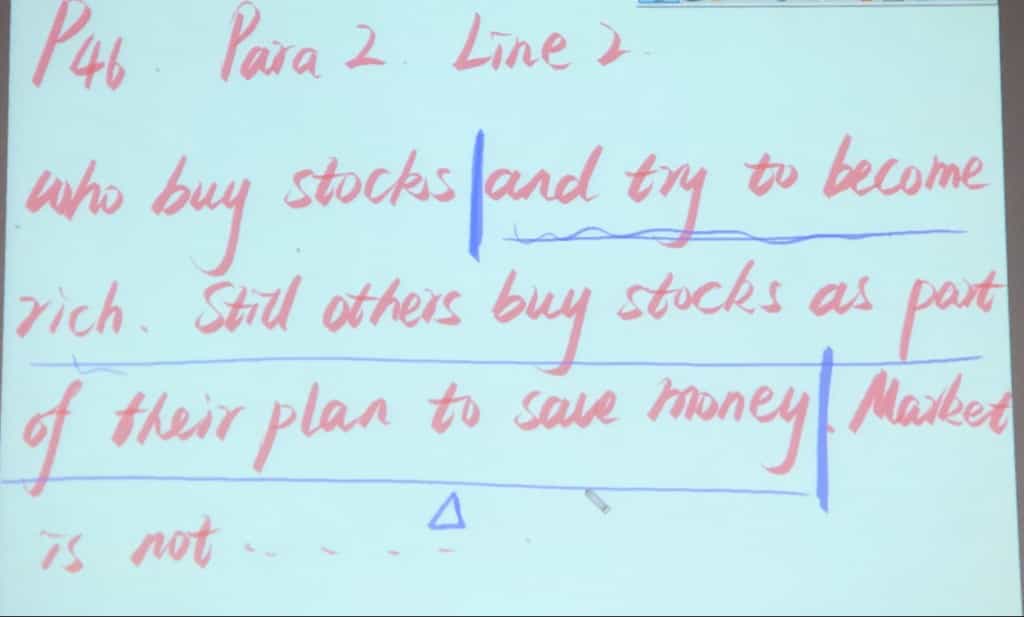 P46. Para 2. Line 2.
who buy stocks and try to become
rich. Still others buy stocks as part
of their plan to save money. Market
is not ......